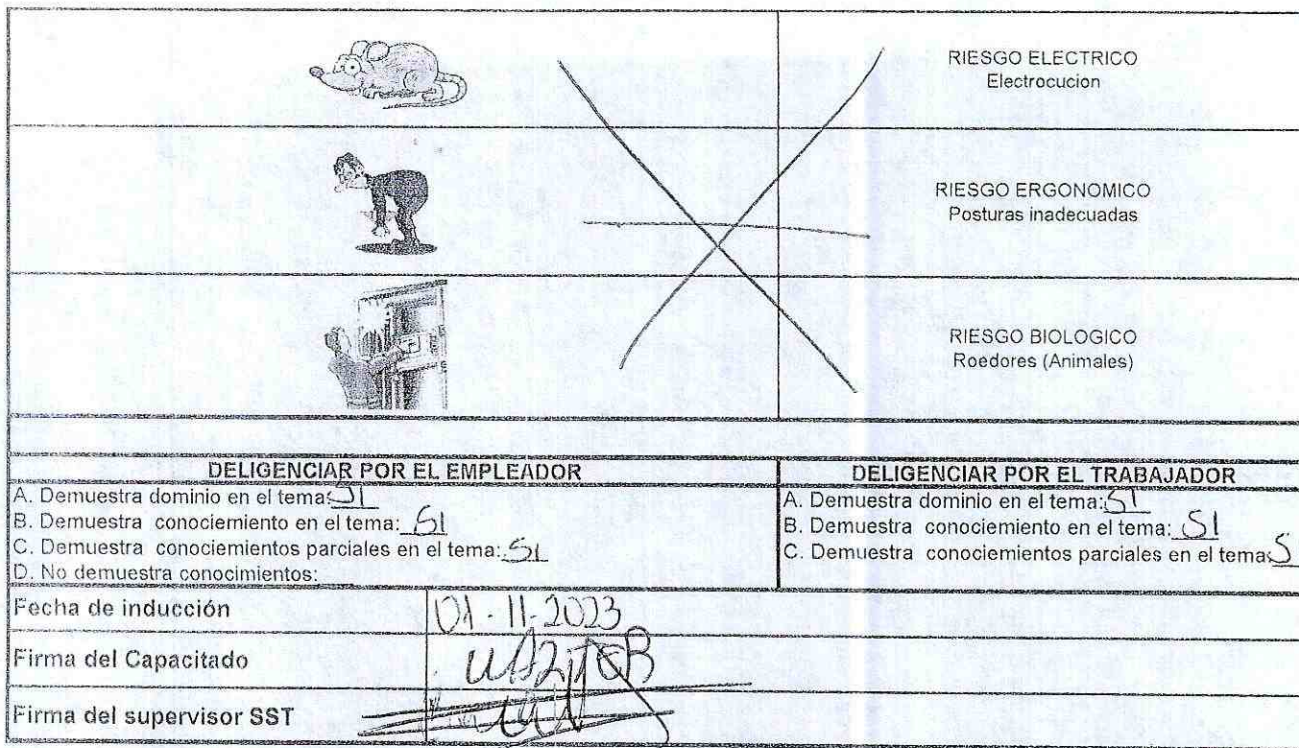 RIESGO ELECTRICO
Electrocucion
RIESGO ERGONOMICO
Posturas inadecuadas
RIESGO BIOLOGICO
Roedores (Animales)
DELIGENCIAR POR EL EMPLEADOR
A. Demuestra dominio en el tema: SI
B. Demuestra conociemiento en el tema: SI
C. Demuestra conociemientos parciales en el tema: SI
D. No demuestra conocimientos:
DELIGENCIAR POR EL TRABAJADOR
A. Demuestra dominio en el tema: SI
B. Demuestra conociemiento en el tema: SI
C. Demuestra conociemientos parciales en el tema: S
Fecha de inducción 01-11-2023
Firma del Capacitado
Firma del supervisor SST